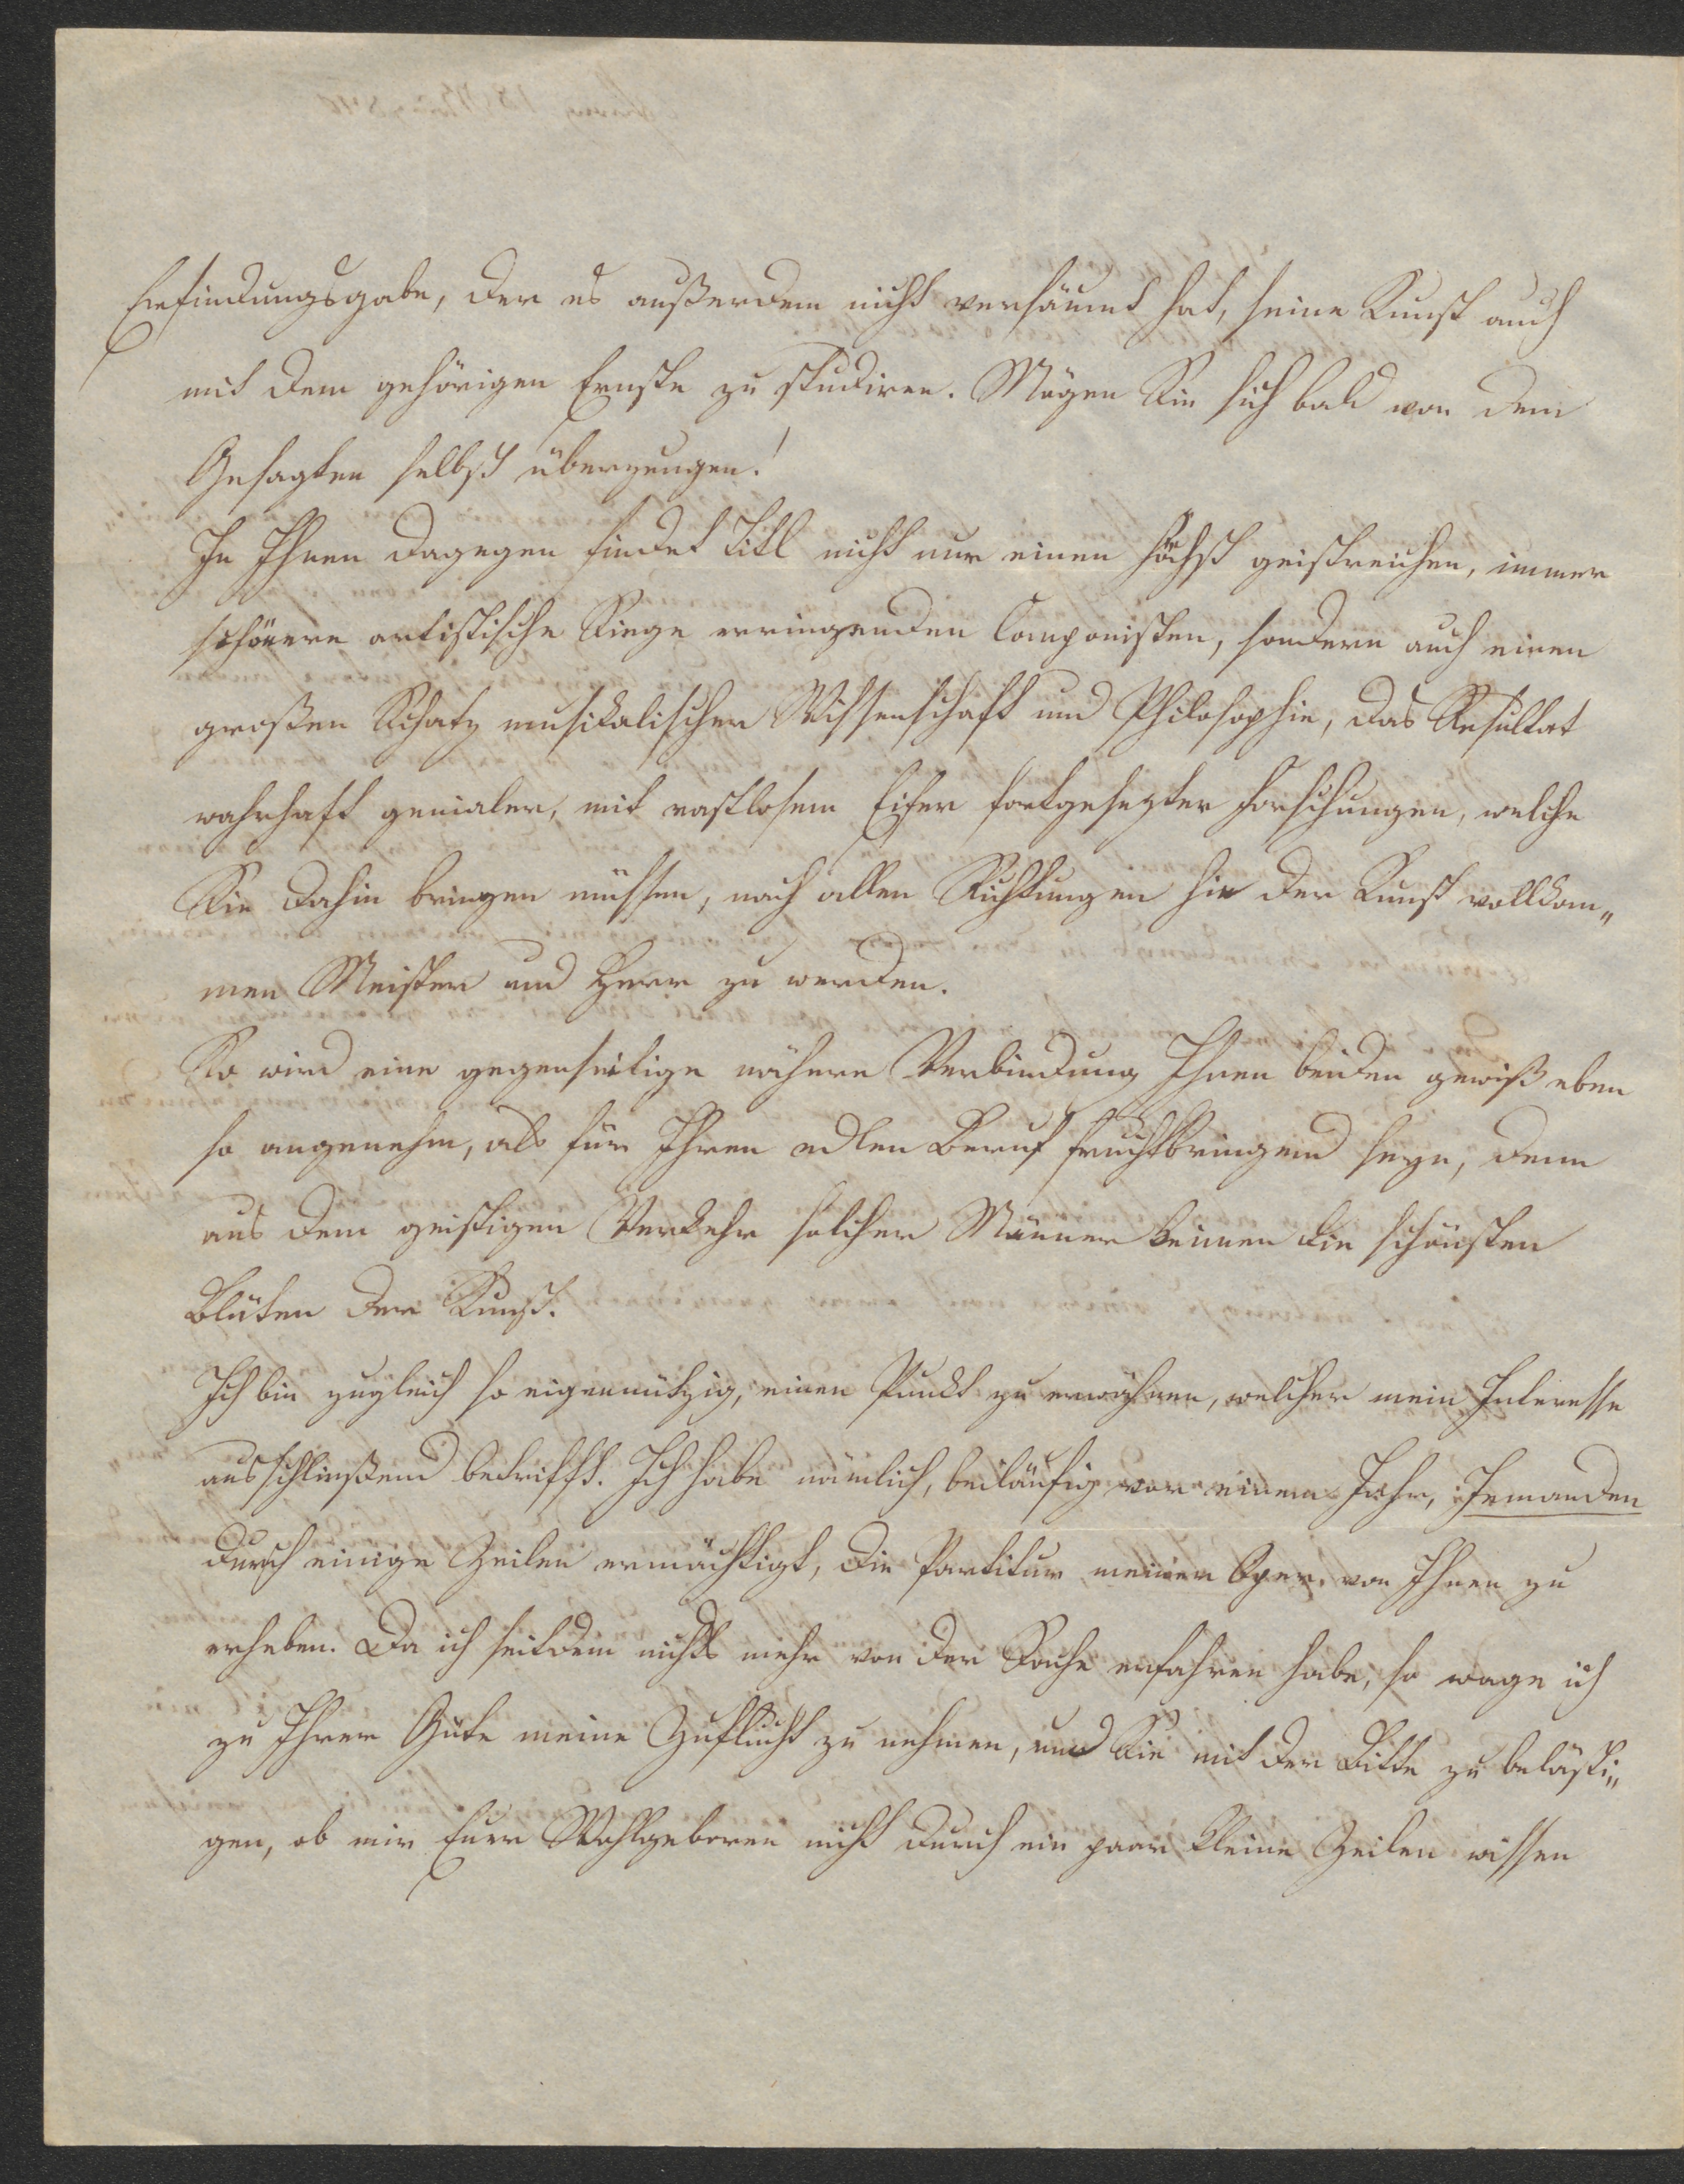 Erfindungsgabe, der es außerdem nicht versäumt hat, seine Kunst auch
mit dem gehörigen Ernste zu studiren. Mögen Sie sich bald von dem
Gesagten selbst überzeugen!
In Ihnen dagegen findet Titl nicht nur einen höchst geistreichen, immer
schönere artistische Siege erringenden Componisten, sondern auch einen
großen Schatz musikalischer Wissenschaft und Philosophie, das Resultat
wahrhaft genialer, mit rastlosem Eifer fortgesezter Forschungen, welche
Sie dahin bringen müssen, nach allen Richtungen hin der Kunst vollkom„
men Meister und Herr zu werden.
So wird eine gegenseitige nähere Verbindung Ihnen beiden gewiß eben
so angenehm, als für Ihren edlen Beruf fruchtbringend seyn, denn
aus dem geistigen Verkehr solcher Männer keimen die schönsten
Blüten der Kunst.
Ich bin zugleich so eigennützig, einen Punkt zu erwähnen, welcher mein Interesse
ausschließend betrifft. Ich habe nämlich, beiläufig vor einem Jahr, Jemanden
durch einige Zeilen ermächtigt, die Partitur meiner Oper von Ihnen zu
erheben. Da ich seitdem nichts mehr von der Sache erfahren habe, so wage ich
zu Ihrer Güte meine Zuflucht zu nehmen, und Sie mit der Bitte zu belästi„
gen, ob mir Euer Wohlgeboren nicht durch ein paar kleine Zeilen wissen